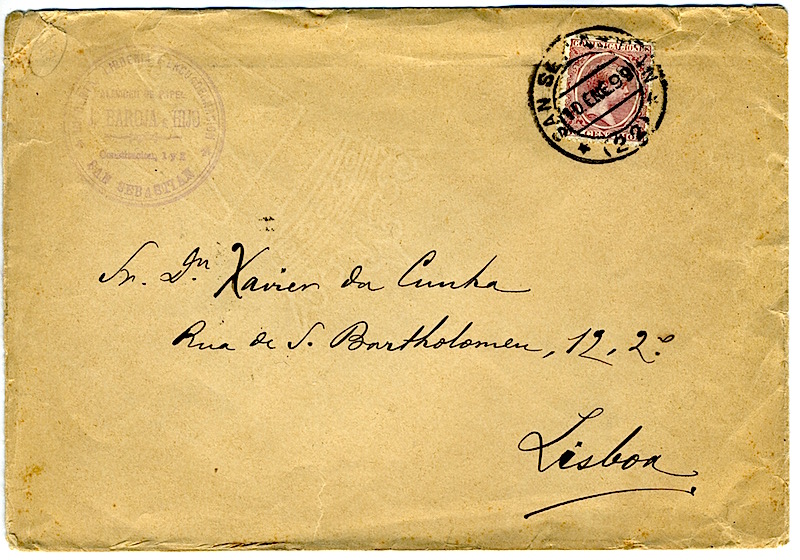 ALMACEN DE PAPEL
BAROJA e HIJO
Constitucion, 1 y 2
SAN SEBASTIAN
COMUNICACIONES
SAN SEBASTIAN
10 ENE 99
(22)
Sr. Dn. Xavier da Cunha
Rua de S. Bartholomeu, 12, 2º
Lisboa